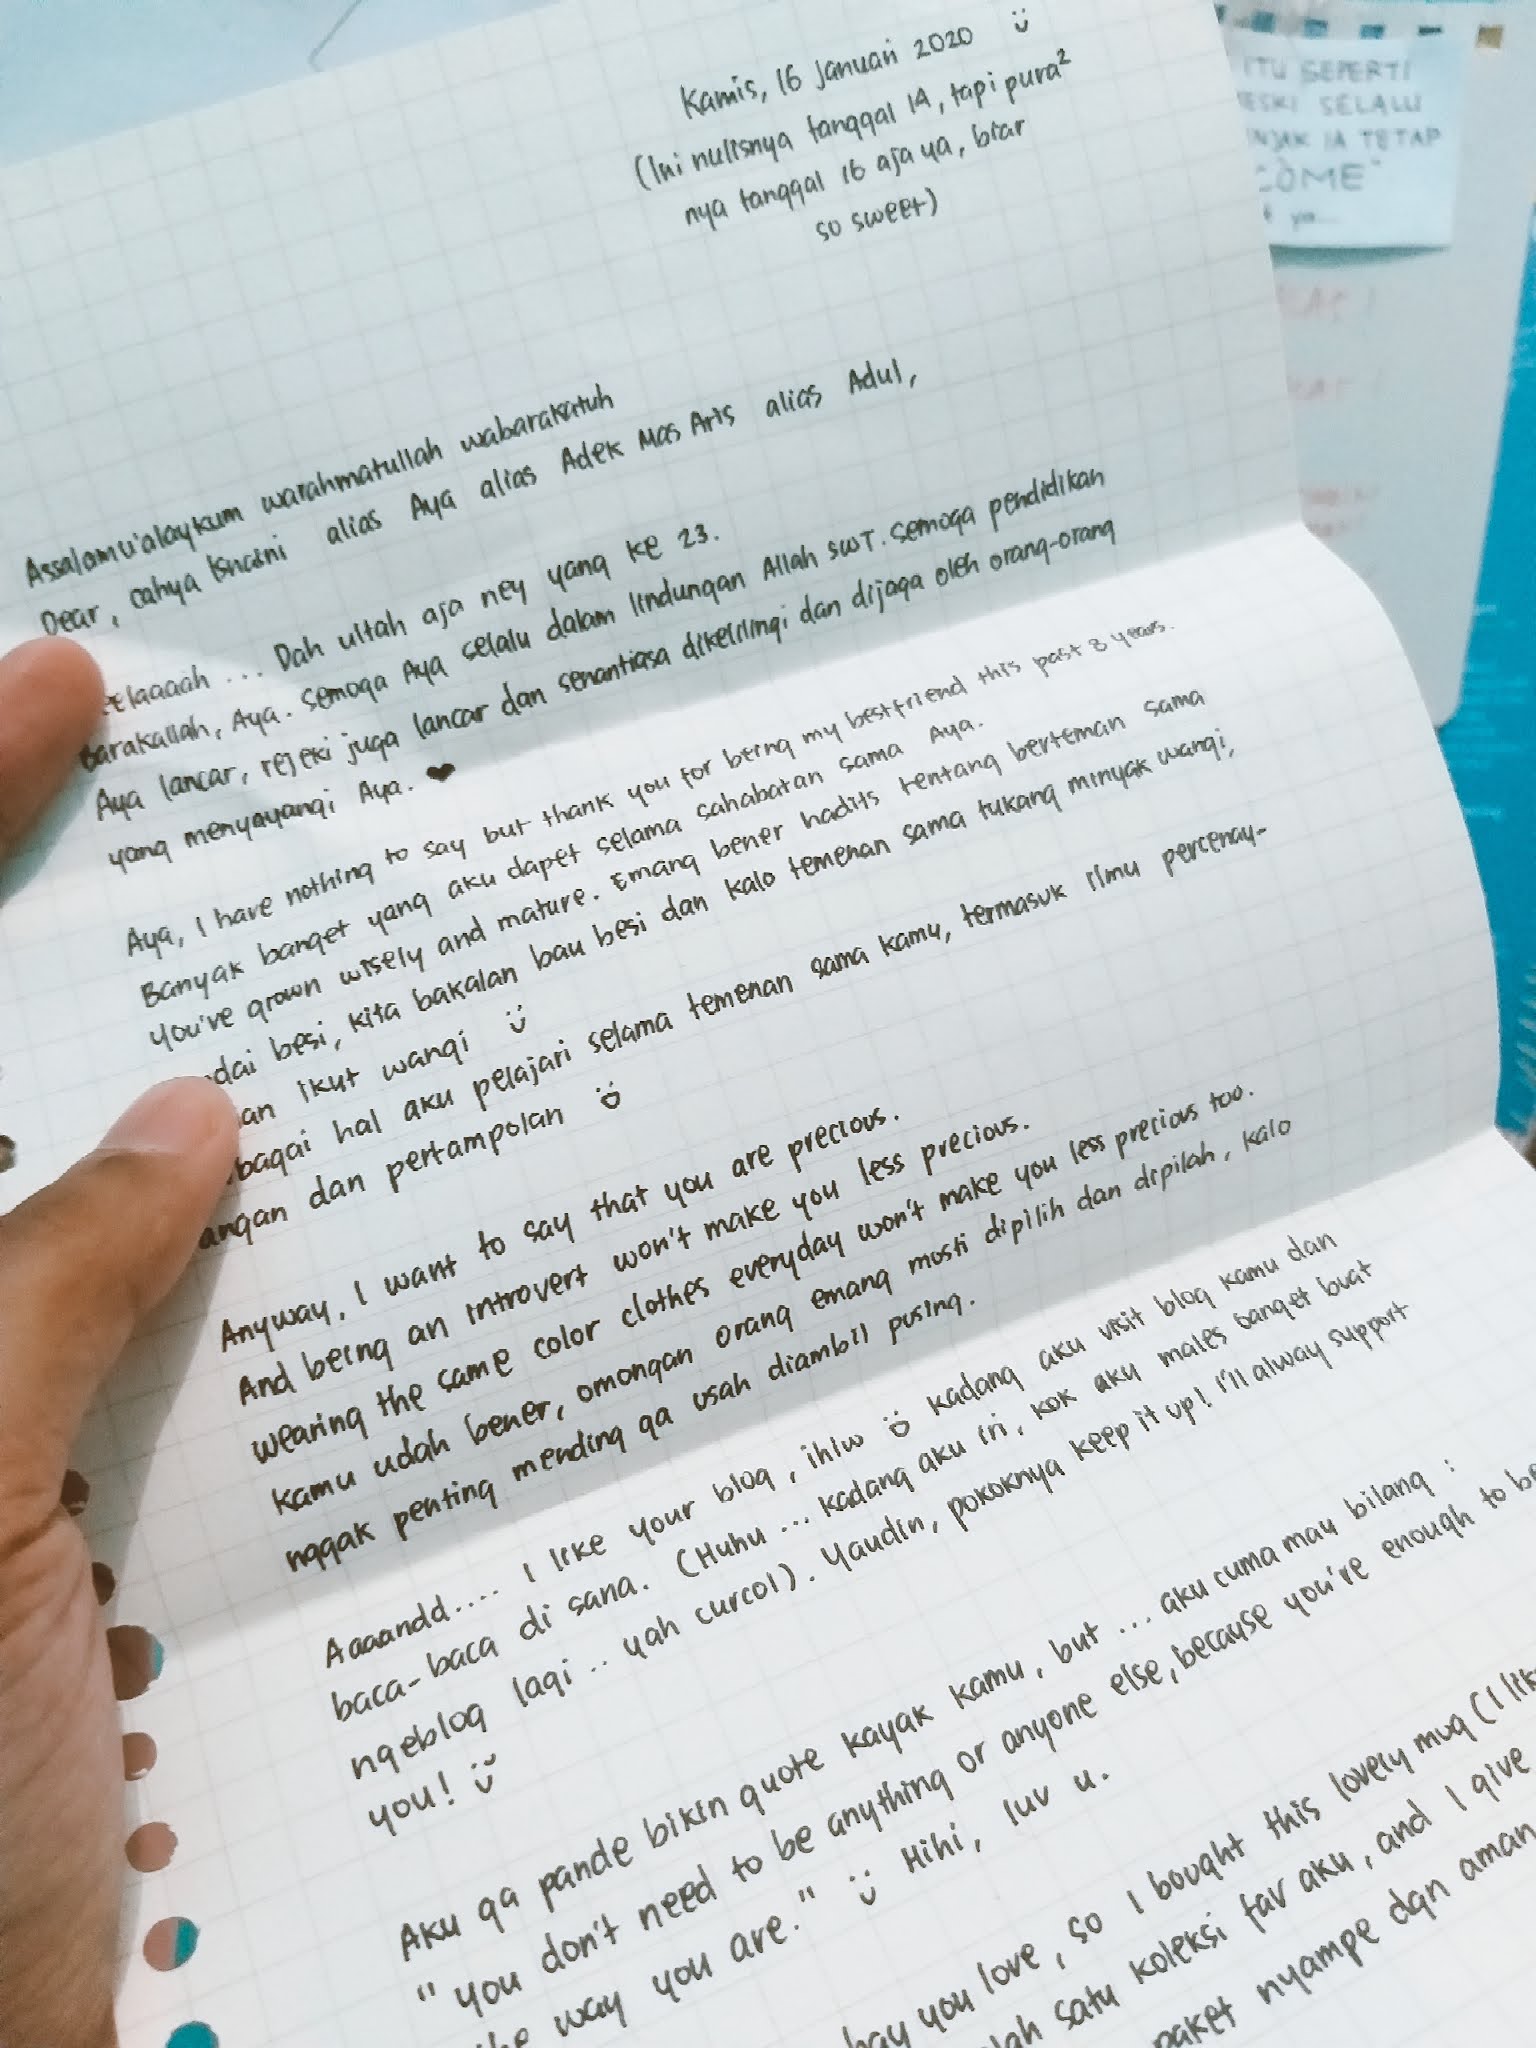 Kamis, 16 Januari 2020 :)
(Ini nulisnya tanggal 14, tapi pura²
nya tanggal 16 aja ya, biar
so sweet)
Assalamu'alaykum warahmatullah wabarakatuh
Dear, Cahya Isnaini alias Aya alias Adek Mas Aris alias Adul,
elaaaah ... Dah ultah aja ney yang ke 23.
Barakallah, Aya. Semoga Aya selalu dalam lindungan Allah SWT. Semoga pendidikan
Aya lancar, rejeki juga lancar dan senantiasa dikelilingi dan dijaga oleh orang-orang
yang menyayangi Aya. ❤
Aya, I have nothing to say but thank you for being my bestfriend this past 8 years.
Banyak banget yang aku dapet selama sahabatan sama Aya.
You've grown wisely and mature. Emang bener hadits tentang berteman sama
dai besi, kita bakalan bau besi dan kalo temenan sama tukang minyak wangi,
an ikut wangi :)
bagai hal aku pelajari selama temenan sama kamu, termasuk ilmu percenay-
angan dan pertampolan :D
Anyway, I want to say that you are precious.
And being an introvert won't make you less precious.
wearing the same color clothes everyday won't make you less precious too.
Kamu udah bener, omongan orang emang mosti dipilih dan dipilah, kalo
nggak penting mending ga usah diambil pusing.
Aaaandd.... I like your blog, ihiw :D kadang aku visit blog kamu dan
baca-baca di sana. (Huhu ... kadang aku iri, kok aku males banget buat
ngeblog lagi .. yah curcol). Yaudin, pokoknya keep it up! I'll alway support
you! :)
Aku ga pande bikin quote kayak kamu, but ... aku cuma mau bilang :
"You don't need to be anything or anyone else, because you're enough to be
the way you are." :) Hihi, luv u.
you love, so I bought this lovely mug (I like
lah satu koleksi fav aku, and I give
paket nyampe dgn aman
ITU SEPERTI
ESKI SELALU
NJAK IA TETAP
COME"